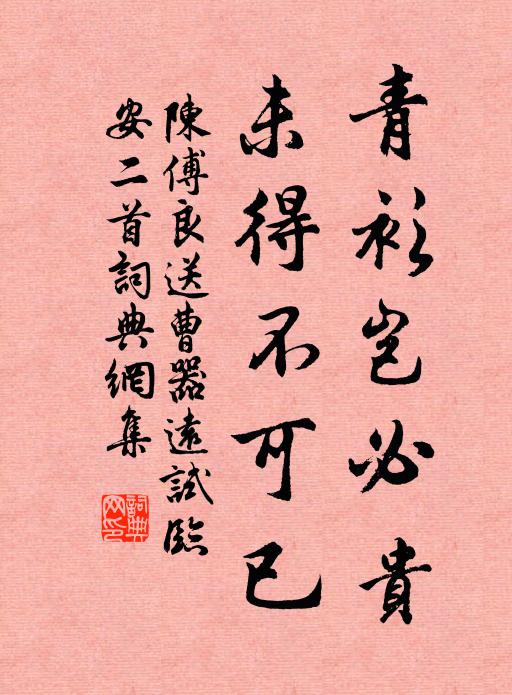 青衫岂必貴
未得不可已
陳傅良送曹器遠試臨
安二首詞典網集
詞典网印